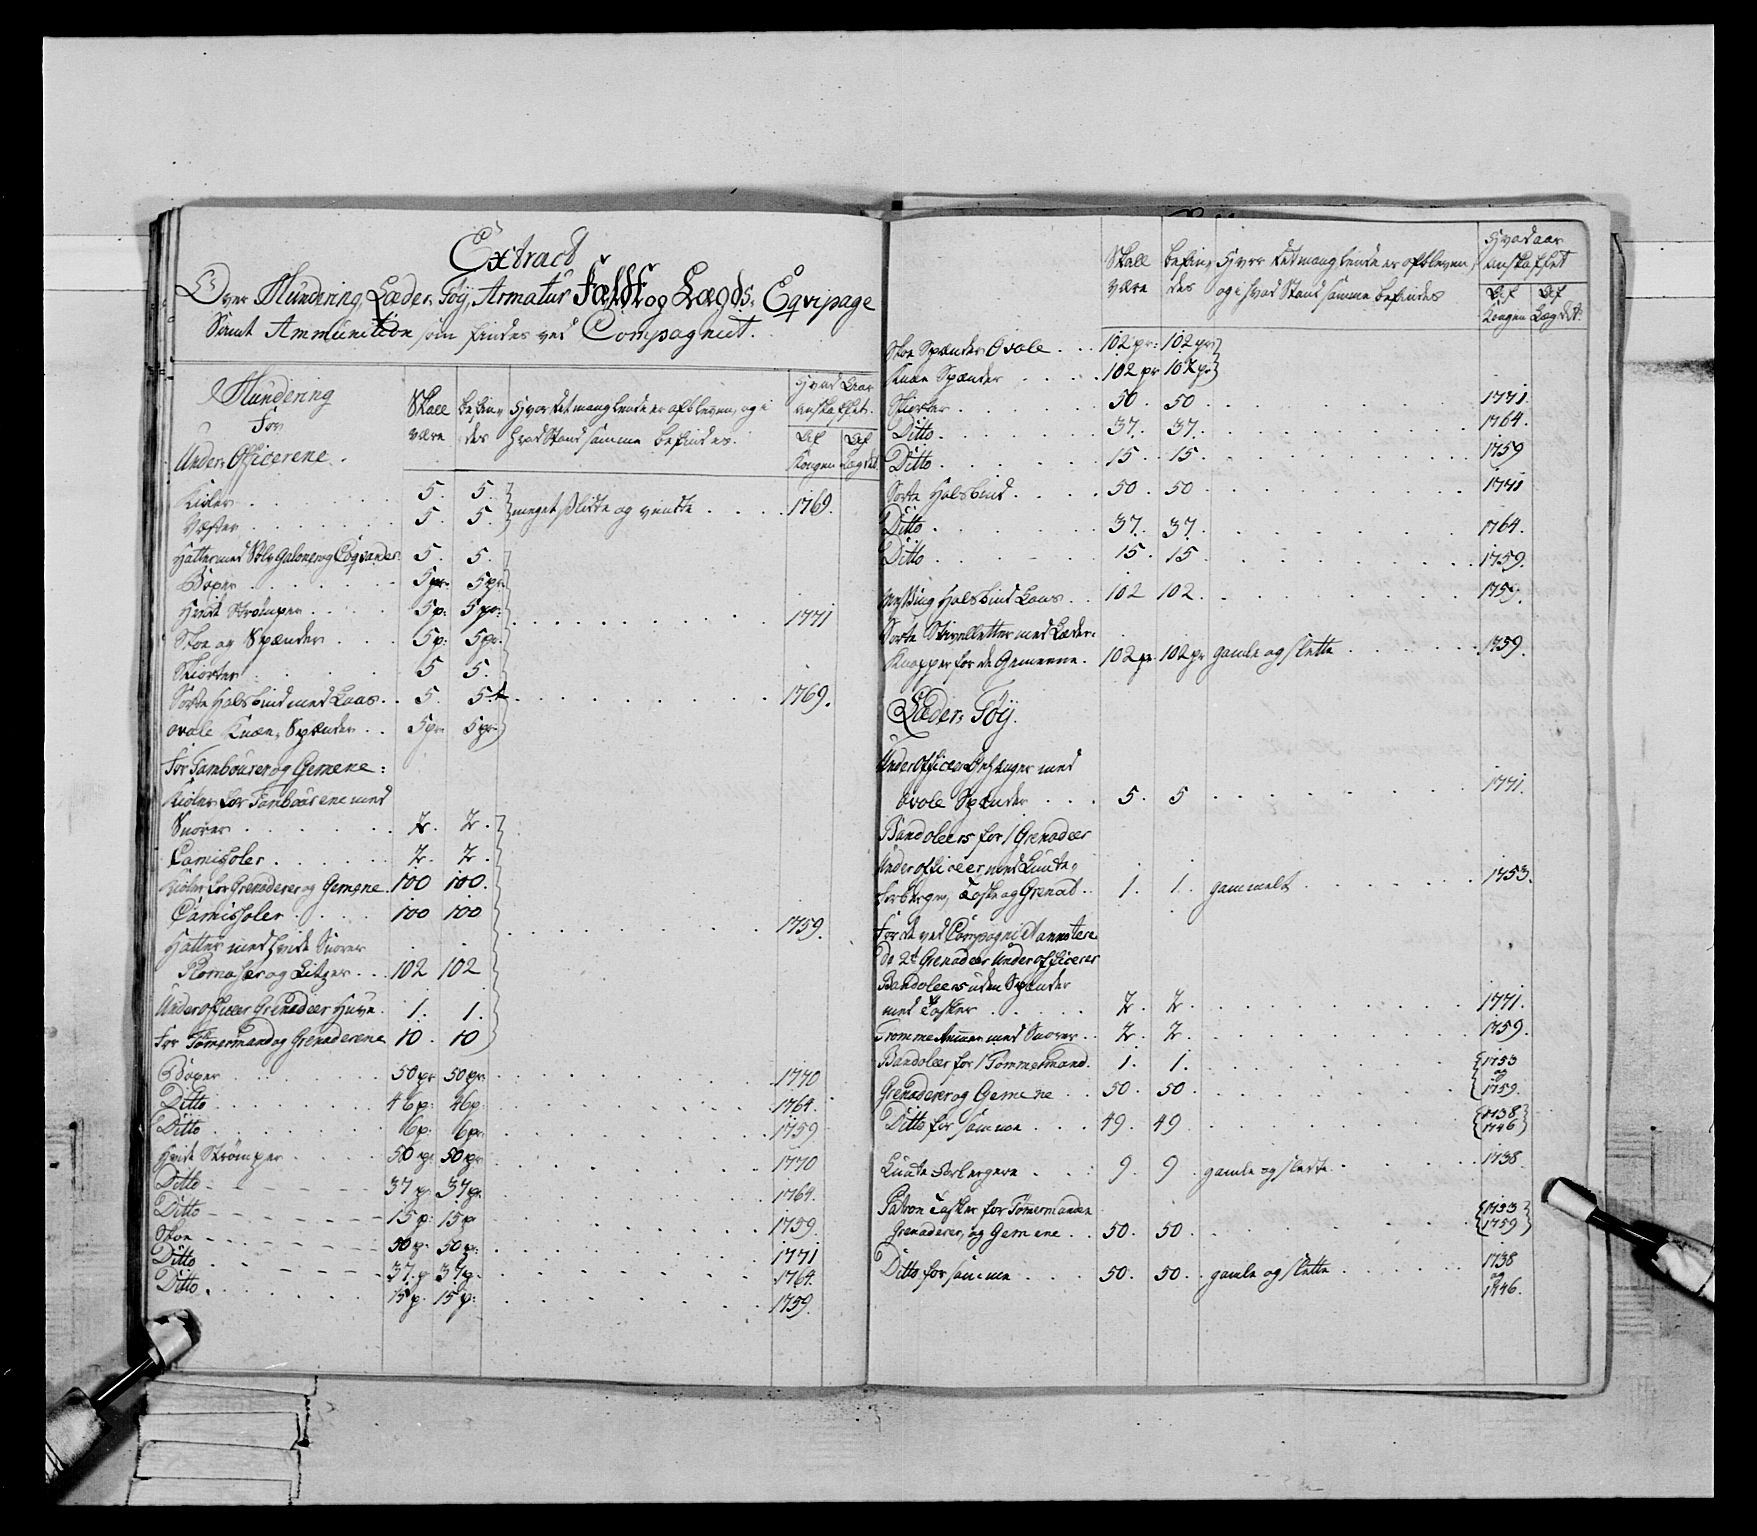 Extract
Over Mundering, Læder, Tøÿ, Armatur Feldt og Lægds, Eqvipage
Samt Ammunition som findes ved Compagniet.
Mundering
For
Under-Officerene.
Skall være
befindes
Hvor det manglende er afbleven, og i
hvad Stand samme befindes.
Hvad Aar
anskaffet.
Af Kongen
Af Lægdet
Kioler . . . 5. 5.
Væster . . . 5. 5. meget slidte og vendte . . . 1769.
Hatter med Sølv Galoner og Coqvarder 5. 5.
Boxer . . . 5 pr. 5 pr.
Hvide Strømper . . . 5 p: 5 pr:
Skoe og Spænder . . . 5 p: 5 pr. . . . 1771
Skiorter . . . 5 5.
Sorte Halsbind med Laas . . 5. 5. . . . 1769.
ovale Knæe-Spænder . . 5 pr. 5 pr.
For Tambourer og Gemene:
Kioler for Tambourene med
Snorer . . . 2. 2.
Camisoler . . . 2. 2.
Kioler for Grenaderer og Gemene. 100 100.
Camisoler . . . 100 100
Hatter med hvide Snorer . . . 1759.
og Litzer . . . 102 102
Underofficeer Grenadeer Huve. 1. 1.
For Tømermand og Grenaderene 10. 10
Boxer . . . 50 pr 50 pr. . . . 1770
Ditto . . . 46 p: 46 p: . . . 1764.
Ditto . . . 6 p: 6 pr. . . . 1759
Hvide Strømper . . . 50 pr. 50 pr . . . 1770
Ditto . . . 37 p. 37 p. . . . 1764.
Ditto . . . 15 p: 15 p . . . 1759.
Skoe . . . 50 p. 50 p: . . . 1771
Ditto . . . 37. p 37 p. . . . 1764.
Ditto . . . 15 p. 15 p: . . . 1759.
Skall være
befindes
Hvor det manglende er afbleven,
og i hvad Stand samme befindes
Hvad aar
anskaffet
Af Kongen
Af Lægdet.
Skoe Spænder Ovale . . . 102 pr: 102 pr.
Knæe Spænder . . . 102 pr 102 pr
Skiorter . . . 50. 50. . . . 1771.
Ditto . . . 37. 37. . . . 1764.
Ditto . . . 15. 15. . . . 1759
Sorte Halsbind . . . 50. 50. . . . 1771
Ditto . . . 37. 37. . . . 1764.
Ditto . . . 15. 15. . . . 1759.
Messing Halsbind Laas . . 102 102. . . . 1759.
Sorte Stivelletter med Læder-
Knapper for de Gemeene. 102 pr. 102 pr gamle og slette . . . 1759.
Læder-Tøÿ.
Underofficeer Gehænger med
ovale Spænder . . . 5. 5 . . . 1771.
Bandoleers for 1 Grenadeer
Underofficeer med Lunte-
forberger, Taske og Grenad . . 1. 1. gammelt . . . 1753.
For de ved Compagniet annotere
de 2de Grenadeer Underofficerer
Bandoleers uden Spænder
med Tasker . . . 2. 2. . . . 1771.
Tromme med Snorer . . 2. 2. . . . 1759.
Bandoleer for 1 Tømmermand. 1. 1. . . . 1753
og
Grenaderer og Gemene . . 50. 50. . . . 1759.
Ditto for samme . . . 49. 49 . . . 1738
1746
Lunte Forbergere . . . 9. 9. gamle og slette . . . 1738.
Patron Tasker for Tømermanden
Grenaderer, og Gemene . . 50. 50. . . . 1753
1759
Ditto for samme . . . 50. 50. gamle og slette . . . 1738
og
1746.